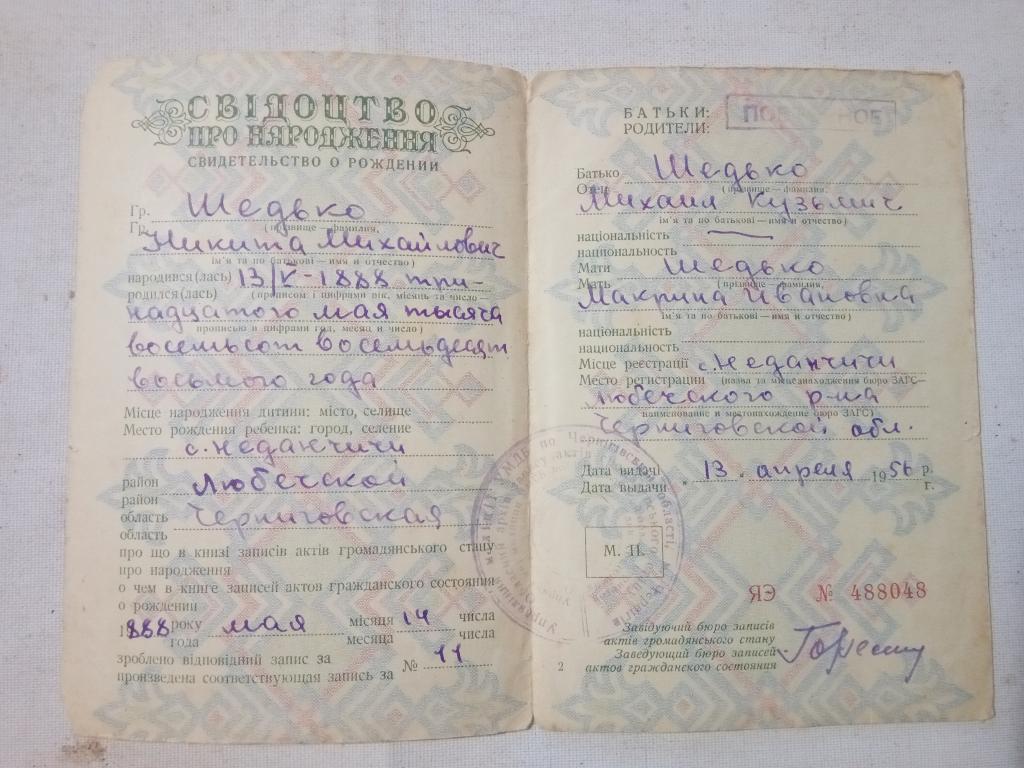 СВІДОЦТВО
ПРО НАРОДЖЕННЯ
СВИДЕТЕЛЬСТВО О РОЖДЕНИИ
Гр. Шедько
Гр. (прізвище — фамилия,
Никита Михайлович
ім'я та по батькові — имя и отчество)
народився(лась) 13/V-1888 три-
родился(лась) (прописом і цифрами рік, місяць та число —
надцатого мая тысяча
прописью и цифрами год, месяц и число)
восемьсот восемьдесят
восьмого года
Місце народження дитини: місто, селище
Место рождения ребенка: город, селение
с. Неданчичи
район Любечской
район
область Черниговская
область
про що в книзі записів актів громадянського стану
про народження
о чем в книге записей актов гражданского состояния
о рождении
1888 року мая місяця 14 числа
года месяца числа
зроблено відповідний запис за № 11
произведена соответствующая запись за
БАТЬКИ:
РОДИТЕЛИ:
Батько Шедько
Отец (прізвище — фамилия,
Михаил Кузьмич
ім'я та по батькові — имя и отчество)
національність —
национальность
Мати Шедько
Мать (прізвище — фамилия,
Макрина Ивановна
ім'я та по батькові — имя и отчество)
національність
национальность
Місце реєстрації с. Неданчичи
Место регистрации (назва та місцезнаходження бюро ЗАГС—
Любечского р-на
наименование и местонахождение бюро ЗАГС)
Черниговской обл.
Дата видачі „13" апреля 1956 р.
Дата выдачи г.
М. П.
ЯЭ № 488048
Завідуючий бюро записів
актів громадянського стану
Заведующий бюро записей
актов гражданского состояния
2